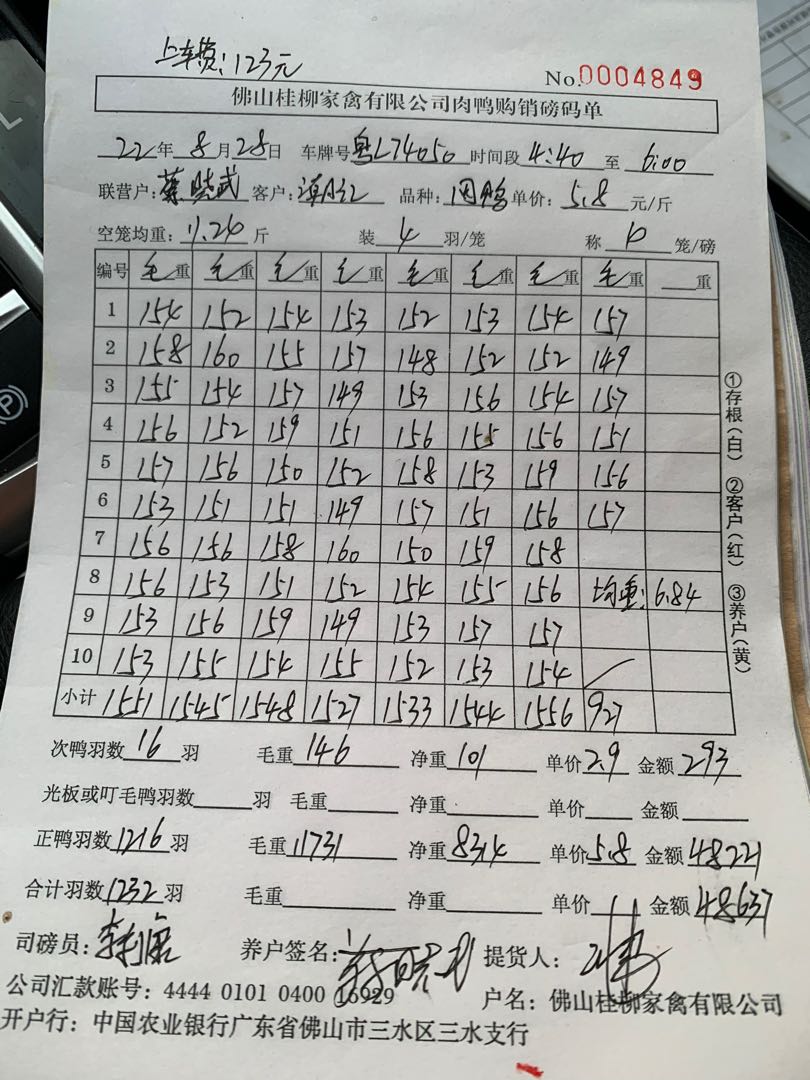 上车费:123元
No.0004849
佛山桂柳家禽有限公司肉鸭购销磅码单
22年8月28日 车牌号粤L74050 时间段4:40至6:00
联营户:蔡晓武 客户: 品种: 单价:5.8元/斤
空笼均重:11.24斤 装4羽/笼 称10笼/磅
编号 毛重 毛重 毛重 毛重 毛重 毛重 毛重 毛重 重
1 154 152 154 153 152 153 154 157
2 158 160 155 157 148 152 152 149
3 155 154 157 149 153 156 154 157
4 156 152 159 151 156 155 156 151
5 157 156 150 152 158 153 159 156
6 153 151 151 149 157 151 156 157
7 156 156 158 160 150 159 158
8 156 153 151 152 154 155 156 均重:6.84
9 153 156 159 149 153 157 157
10 153 155 154 155 152 153 154
小计 1551 1545 1548 1527 1533 1544 1556 927
次鸭羽数16羽 毛重146 净重101 单价2.9 金额293
光板或叮毛鸭羽数 羽 毛重 净重 单价 金额
正鸭羽数1216羽 毛重11731 净重8314 单价5.8 金额48221
合计羽数1232羽 毛重 净重 单价 金额48637
司磅员: 养户签名: 提货人:
公司汇款账号:4444 0101 0400 16929 户名:佛山桂柳家禽有限公司
开户行:中国农业银行广东省佛山市三水区三水支行
①存根(白) ②客户(红) ③养户(黄)